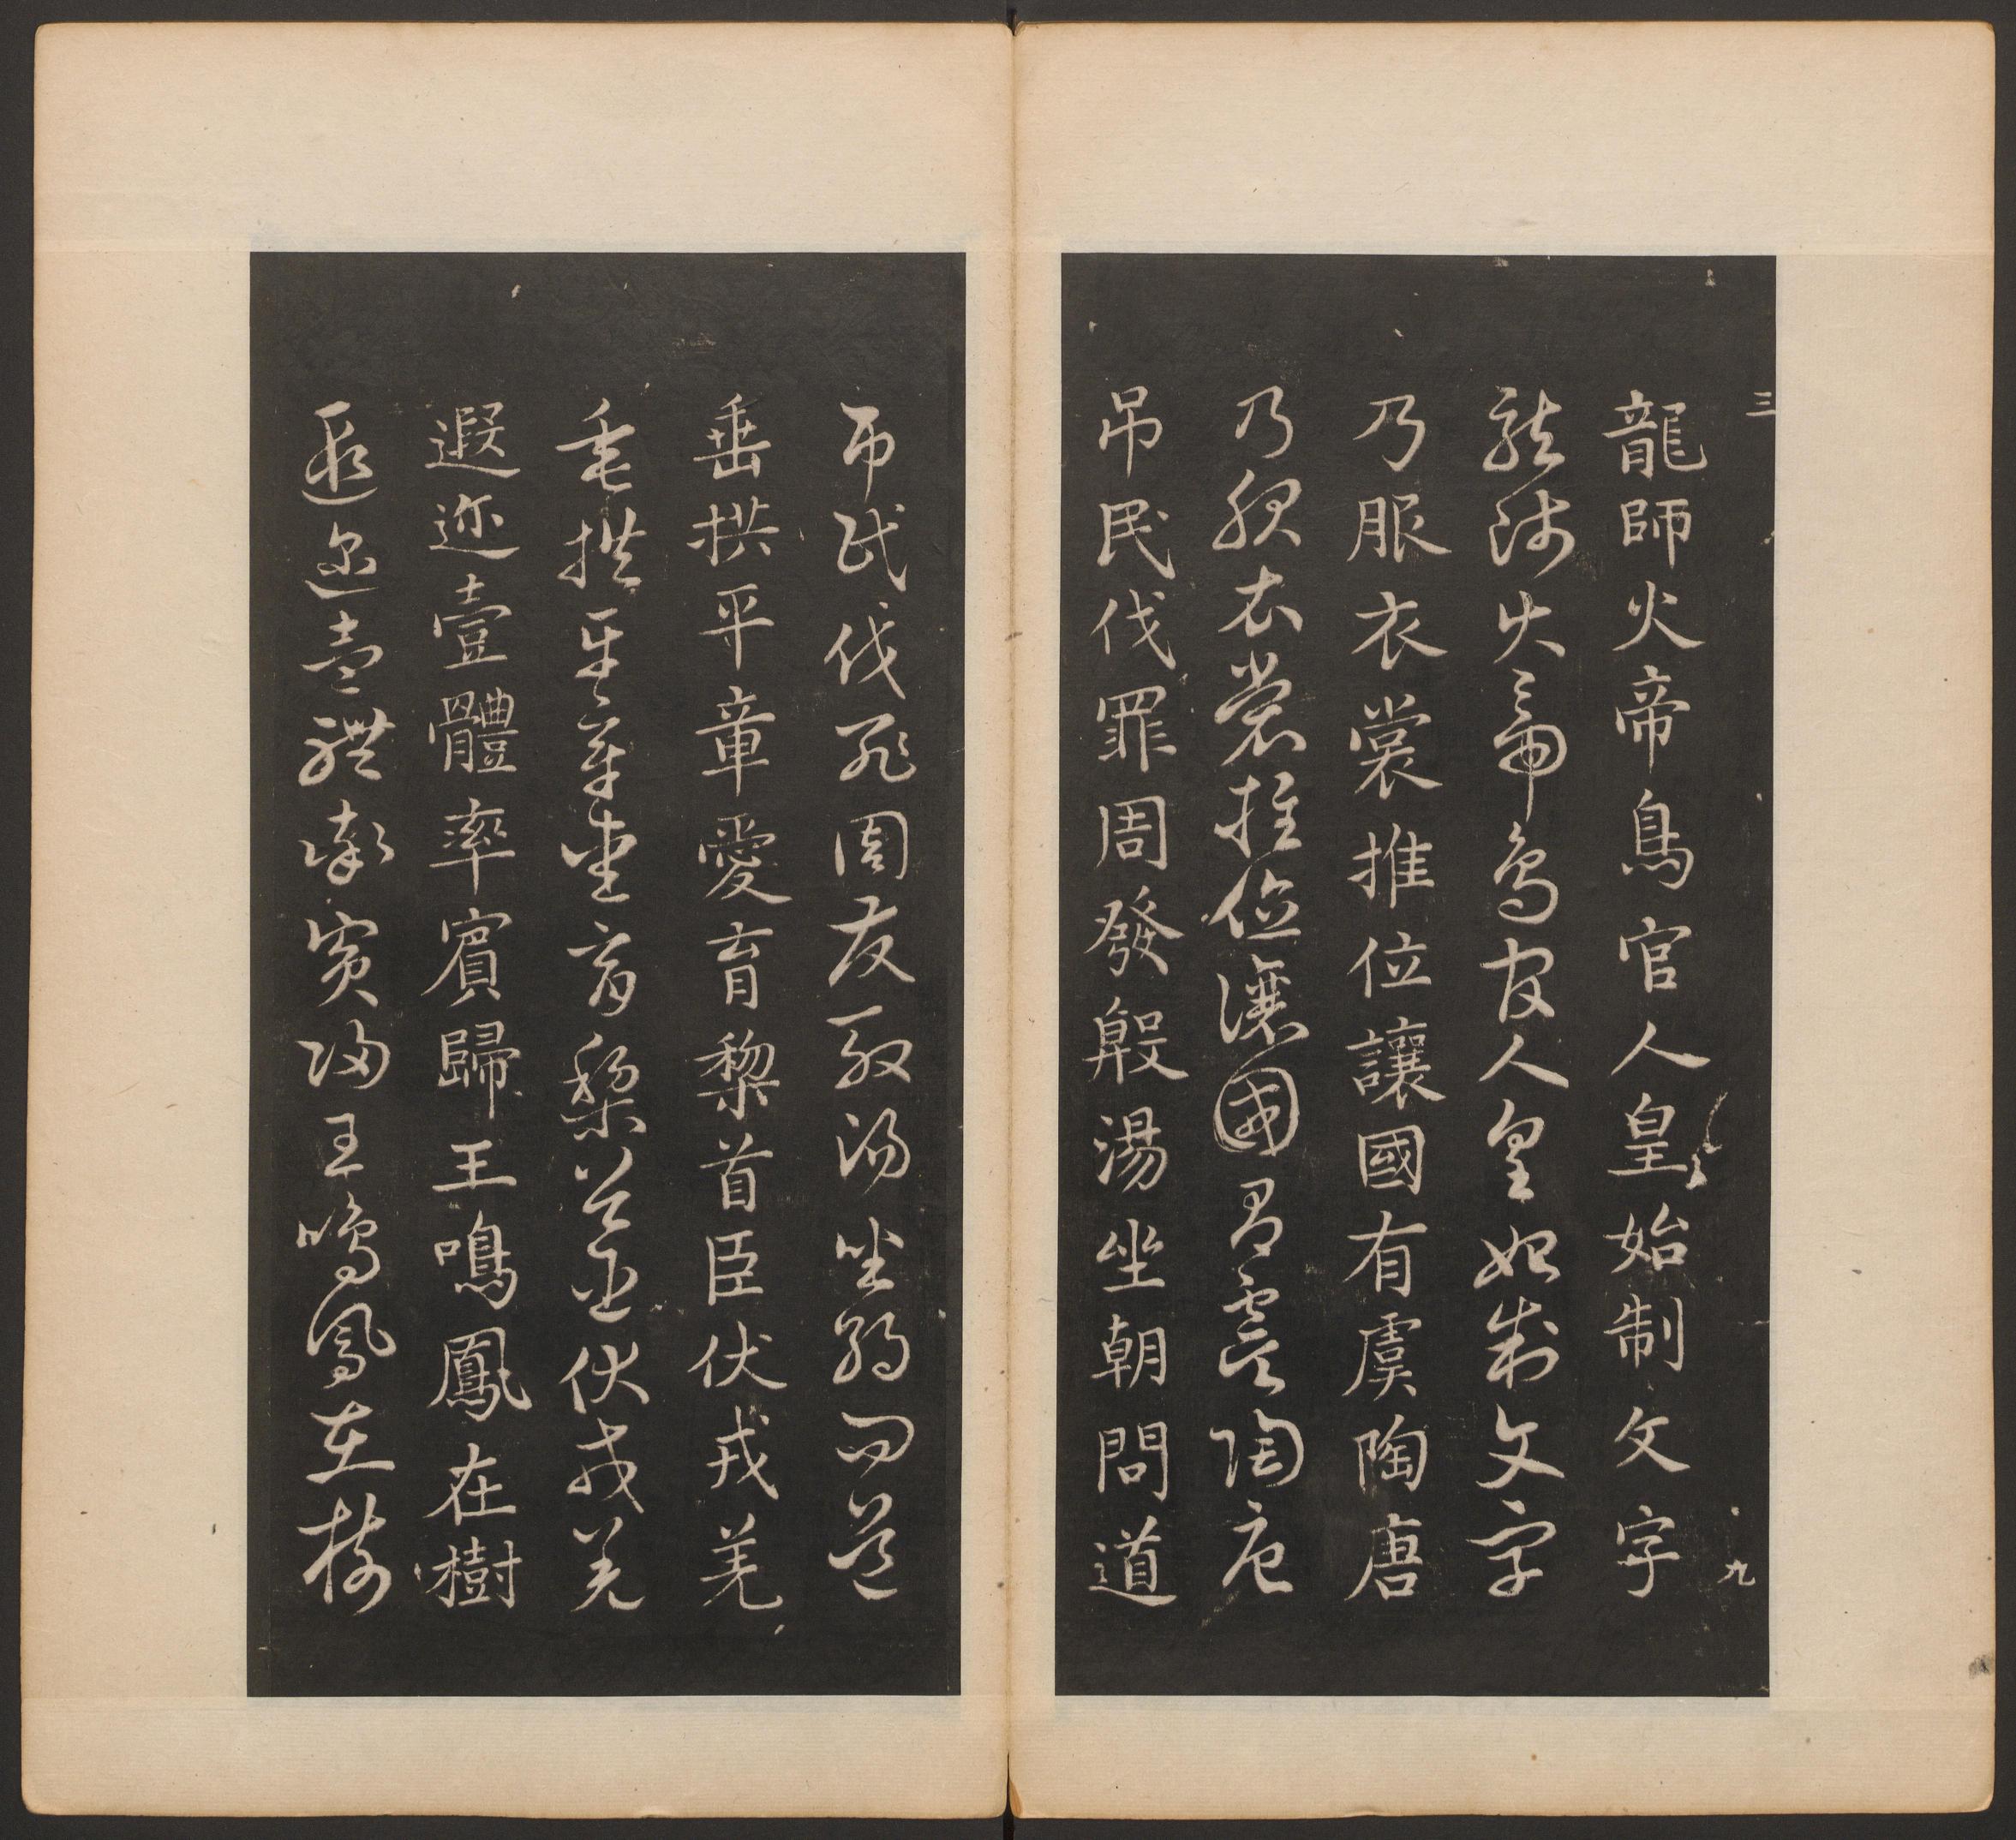 三
九
龍師火帝鳥官人皇始制文字
龍師火帝鳥官人皇始制文字
乃服衣裳推位讓國有虞陶唐
乃服衣裳推位讓國有虞陶唐
吊民伐罪周發殷湯坐朝問道
吊民伐罪周發殷湯坐朝問道
垂拱平章愛育黎首臣伏戎羌
垂拱平章愛育黎首臣伏戎羌
遐迩壹體率賓歸王鳴鳳在樹
遐迩壹體率賓歸王鳴鳳在樹